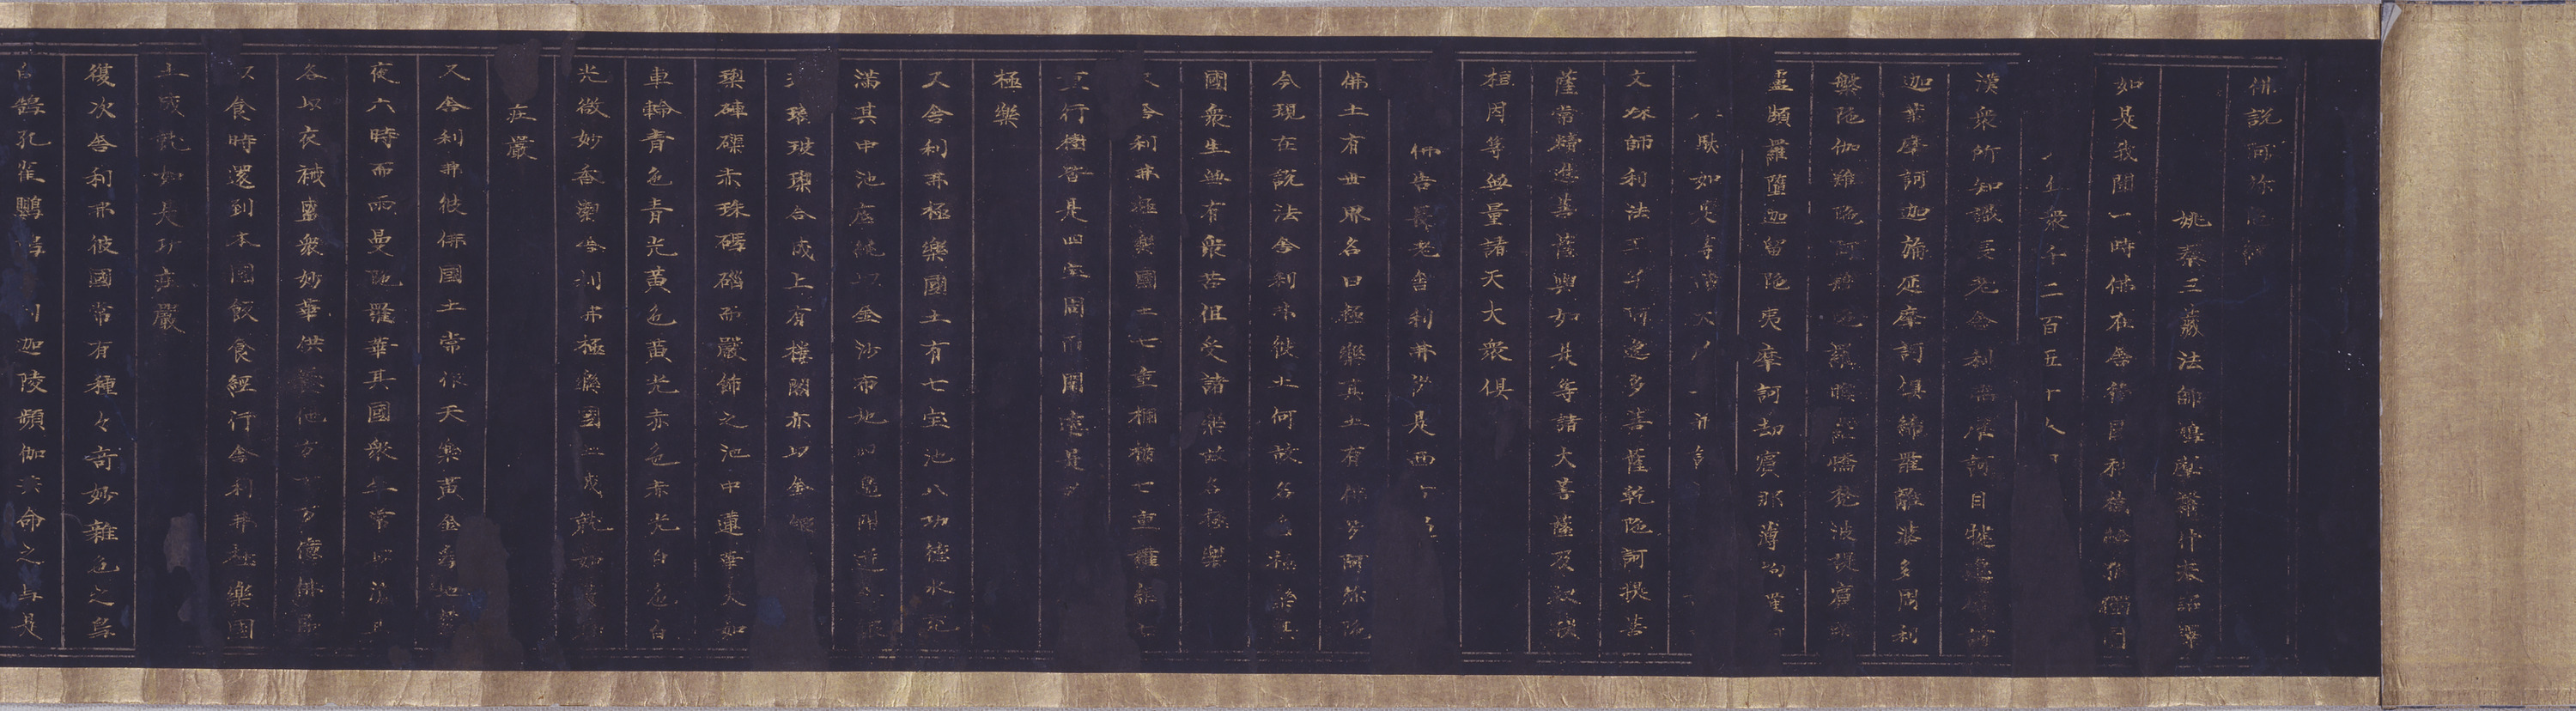 佛説阿弥陁經
姚秦三藏法師鳩摩羅什奉詔譯
如是我聞一時佛在舍衛國祇樹給孤獨園
衆千二百五十人
漢衆所知識長老舍利弗摩訶目揵連摩訶
迦葉摩訶迦旃延摩訶俱絺羅離婆多周利
槃陁伽難陁阿難陁羅睺羅憍梵波提賓頭
盧頗羅墮迦留陁夷摩訶劫賓那薄拘羅
䭾如是等諸大
文殊師利法王子阿逸多菩薩乾陁訶提菩
薩常精進菩薩與如是等諸大菩薩及釋提
桓因等無量諸天大衆俱
佛告長老舍利弗從是西
佛土有世界名曰極樂其土有佛号阿弥陁
今現在説法舍利弗彼土何故名為極樂其
國衆生無有衆苦但受諸樂故名極樂
又舍利弗極樂國土七重欄楯七重羅網七
重行樹皆是四寳周帀圍遶是故
極樂
又舍利弗極樂國土有七寳池八功德水充
滿其中池底純以金沙布地四邊階道金銀
瑠璃頗瓈合成上有樓閣亦以金銀
瓈硨磲赤珠碼碯而嚴飾之池中蓮華大如
車輪青色青光黃色黃光赤色赤光白色白
光微妙香潔舍利弗極樂國土成就如是功
莊嚴
又舍利弗彼佛國土常作天樂黃金為地晝
夜六時而雨曼陁羅華其國衆生常以清旦
各以衣裓盛衆妙華供養他方十万億佛即
以食時還到本國飯食經行舍利弗極樂國
土成就如是功莊嚴
復次舍利弗彼國常有種々奇妙雜色之鳥
白鵠孔雀鸚鵡利迦陵頻伽共命之鳥是